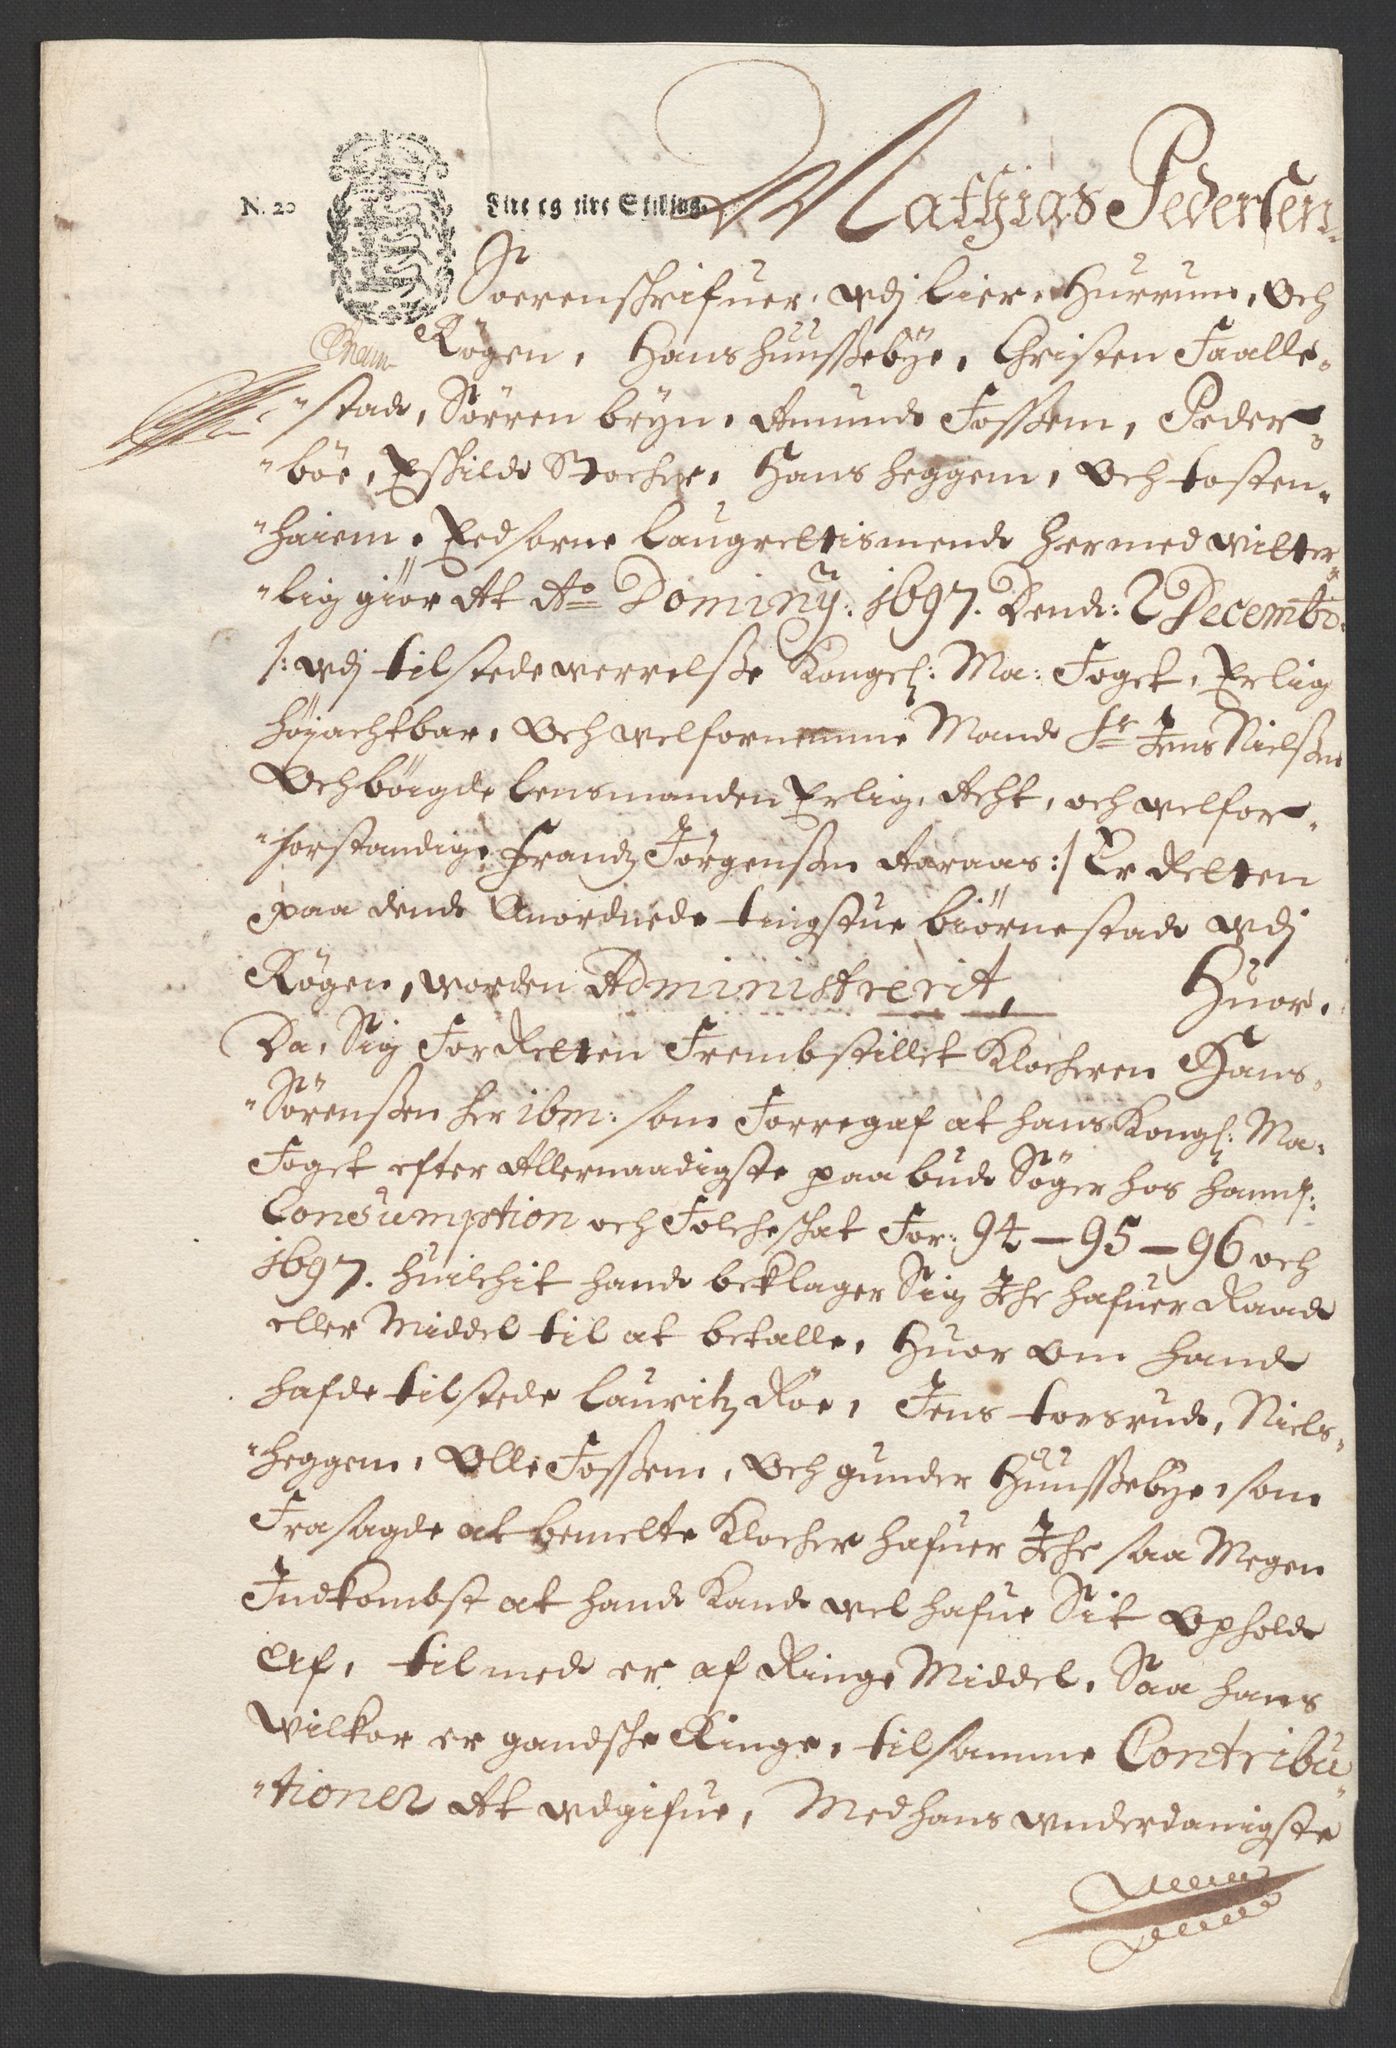 N. 20 Fire og tive Skilling.
Mathias Pedersen
Soerenschrifuer, wdj Lier, Hurrum, och
Røgen, Hans Huußebÿe, Christen Faalle-
"stad, Sørren brÿn, Amund Fossem, Peder-
"bøe, Eschild Stocher, Hans heggem, och tosten-
"haiem, Eedsorne Laugrettismend hermed witter-
"lig giør At Ao Dominÿ: 1697. Dend: 2 Decembr:
/: wdj tilstedewerrelße Kongel: Ma: Foget, Erlig
høÿachtbar, och welfornemme Mand Sr Jens Nielßen
Och böigde Lensmanden Erlig, Acht, och welfor-
"forstandige Frandz Jörgenßen Aaraas :/ Er Retten
paa dend Anordnede tingstue biørnestad wdj
Røgen, worden Administrerit, Huor-
Da, Sig For Retten Frembstillet Klocheren Hans-
"Sörenßen her ibm: som Forregaf at hans Kongl: Ma:
Foget efter Allernaadigste paabud Söger hos hannem:
Consumption och Folcheschat For: 94 - 95 - 96 och
1697. huilchit hand beklager Sig Iche hafuer Raad
eller Middel til at betalle, Huor om hand
hafde tilstede Lauritz Röe, Jens torsrud, Niels-
"heggem, Olle Fossem, och gunder Huußebÿe, som
Frasagde at bemelte Klocher hafuer Iche saa Megen
Indkombst at hand Kand wel hafue Sit Ophold
Af, tilmed er af Ringe Middel, Saa hans
wilkor er gandsche Ringe, tilsamme Contribu-
"tioner At wdgifue, Med hans wnderdanigste